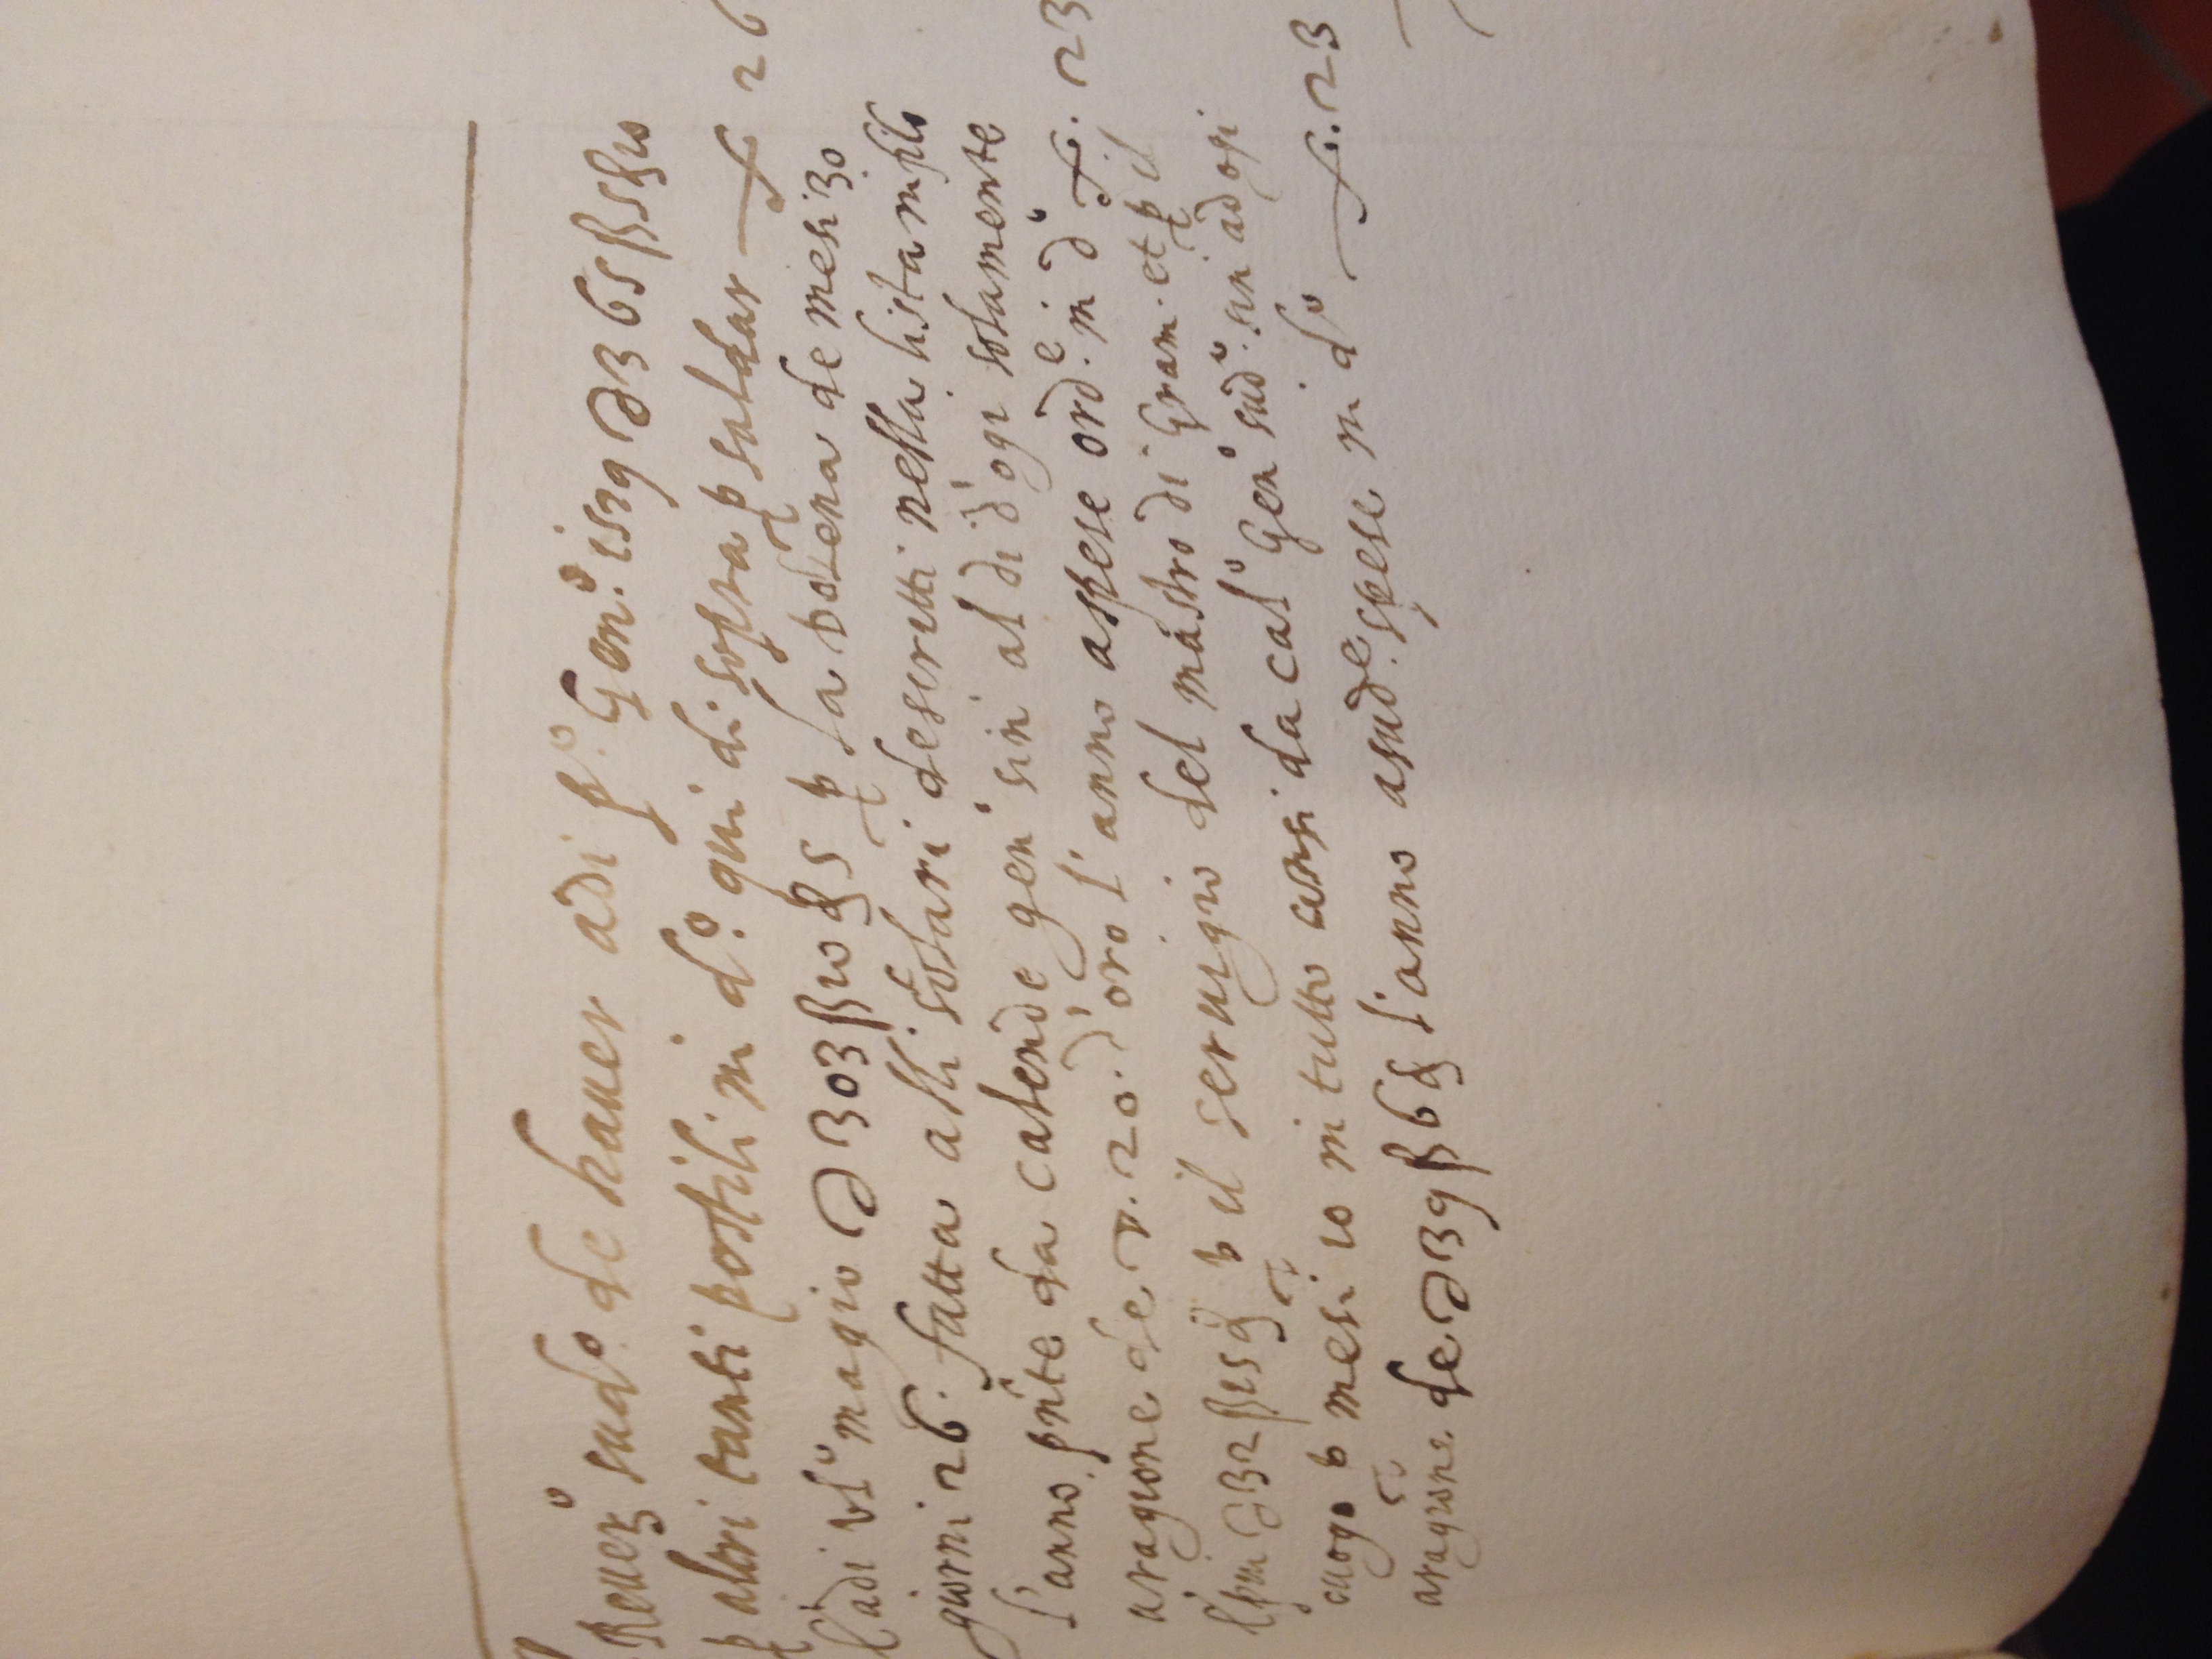 Reuerº sudº de hauer adi pº Genº 1529 ∂ 36 5 ß
p altri tanti postili in dº qui di sopra p saldar f 26
E adi ulº magio ∂ 303 ß 10 ₰ 5 p la dozena de mesi 3º
giorni 26. fatta alli scolari descritti nella lista in filo
l'anno pñte da calende genº sin al di d'ogi solamente
aragione de v. 20. d'oro l'anno aspese ordᵉ. in dº f. 23
E piu ∂ 32 ß 15 ₰ p il seruigio del mastro di Gram. et p il
cuogo p mesi 10 in tutto corsi da calº Genº sudº. sin ad ogi
aragione de ∂ 39 ß 6 ₰ l'anno asudᵉ. spese in dº f. 23